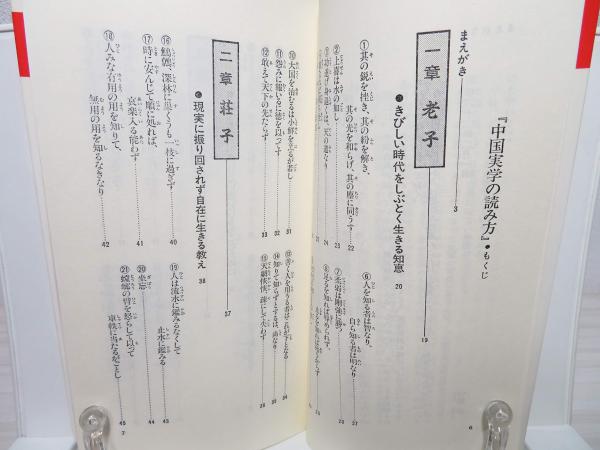 『中国実学の読み方』●もくじ
まえがき 3
一章 老子 19
●きびしい時代をしぶとく生きる知恵 20
①其の鋭を挫き、其の紛を解き、
其の光を和らげ、其の塵に同うす 22
②上善は水の如し
⑥人を知る者は智なり、
自ら知る者は明なり
⑦柔弱は剛強に勝つ
⑩大国を治むるは小鮮を烹るが若し 31
⑪怨みに報いるに徳を以ってす 32
⑫敢えて天下の先たらず 33
⑬善く人を用うる者はこれが下となる 34
⑭知りて知らずとするは、尚なり 35
⑮天網恢恢、疎にして失わず 36
二章 荘子 37
●現実に振り回されず自在に生きる教え 38
⑯鷦鷯、深林に巣くうも一枝に過ぎず 40
⑰時に安んじて順に処れば、
哀楽入る能わず 41
⑱人みな有用の用を知りて、
無用の用を知るなきなり 42
⑲人は流水に鑑みるなくして
止水に鑑みる 43
⑳坐忘 44
㉑螳螂の臂を怒らして以って
車軼に当たるがごとし 45
6
7